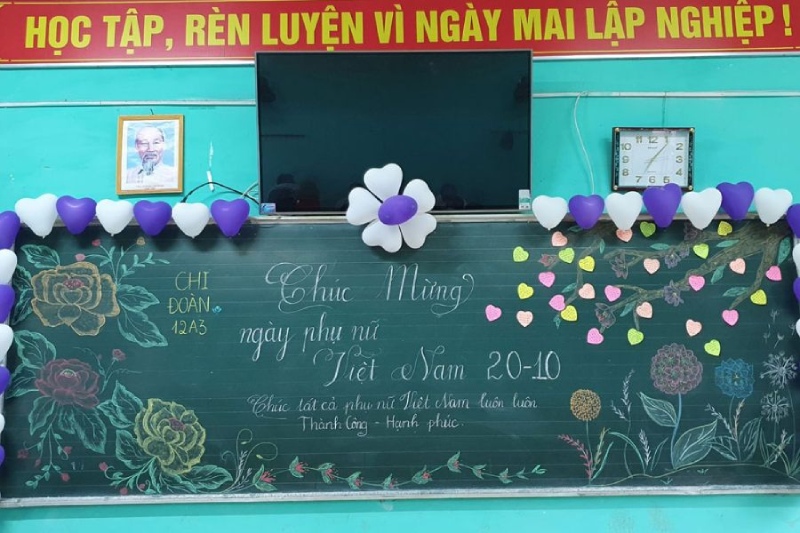 HỌC TẬP, RÈN LUYỆN VÌ NGÀY MAI LẬP NGHIỆP !
CHI
ĐOÀN
12A3
Chúc Mừng
ngày phụ nữ
Việt Nam 20-10
Chúc tất cả phụ nữ Việt Nam luôn luôn
Thành Công - Hạnh phúc.